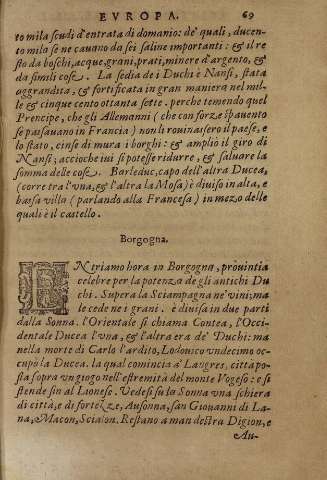 EVROPA. 69
to mila scudi d'entrata di domanio: de' quali, ducen-
to mila se ne cauano da sei saline importanti: & il re
sto da boschi, acque, grani, prati, minere d'argento, &
da simili cose. La sedia de i Duchi è Nansi, stata
aggrandita, & fortificata in gran maniera nel mil-
le & cinque cento ottanta sette. perche temendo quel
Prencipe, che gli Allemanni (che con forze & spauento
se passauano in Francia) non li rouinassero il paese, e
lo stato, cinse di mura i borghi: & ampliò il giro di
Nansi; accioche iui si potesse ridurre, & saluare la
somma delle cose. Barleduc, capo dell'altra Ducea,
(corre tra l'vna, & l'altra la Mosa) è diuiso in alta, e
bassa villa (parlando alla Francesa) in mezo delle
quali è il castello.
Borgogna.
ENtriamo hora in Borgogna, prouintia
celebre per la potenza de gli antichi Du
chi. Supera la Sciampagna ne' vini; ma
le cede ne i grani. è diuisa in due parti
dalla Sonna. l'Orientale si chiama Contea, l'Occi-
dentale Ducea l'vna, & l'altra era de' Duchi: ma
nella morte di Carlo l'ardito, Lodouico vndecimo oc-
cupò la Ducea. la qual comincia à Langres, città po-
sta sopra vn giogo nell'estremità del monte Vogeso: e si
stende sin al Lionese. Vedesi su la Sonna vna schiera
di città, e di fortezze, Ausonna, san Giouanni di La-
na, Macon, Scialon. Restano a man destra Digion, e
Au-